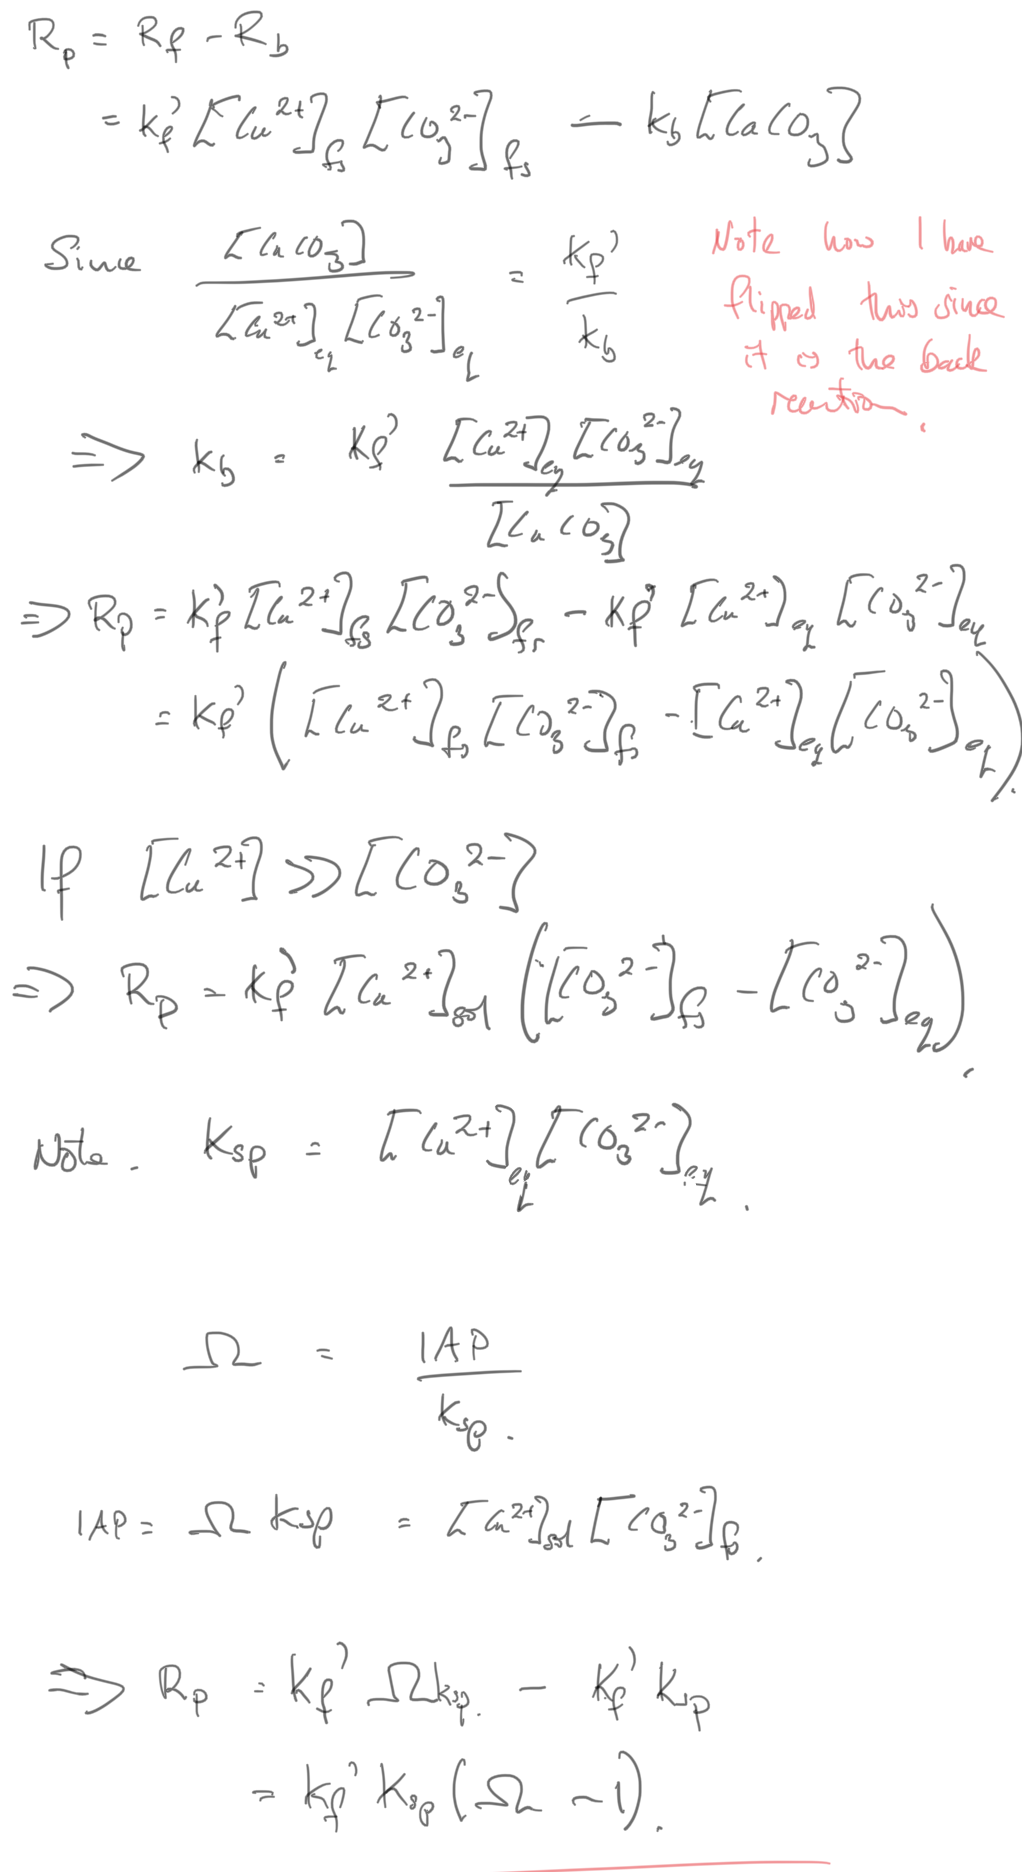 R_p = R_f - R_b
= k_f' [Ca^2+]_fs [CO_3^2-]_fs - k_b [CaCO_3]
Since [CaCO_3] / [Ca^2+]_eq [CO_3^2-]_eq = k_f' / k_b
Note how I have
flipped this since
it is the back
reaction.
⇒ k_b = k_f' [Ca^2+]_eq [CO_3^2-]_eq / [CaCO_3]
⇒ R_p = k_f' [Ca^2+]_fs [CO_3^2-]_fs - k_f' [Ca^2+]_eq [CO_3^2-]_eq
= k_f' ([Ca^2+]_fs [CO_3^2-]_fs - [Ca^2+]_eq [CO_3^2-]_eq).
If [Ca^2+] >> [CO_3^2-]
⇒ R_p = k_f' [Ca^2+]_sol ([CO_3^2-]_fs - [CO_3^2-]_eq).
Note. K_sp = [Ca^2+]_eq [CO_3^2-]_eq.
Ω = IAP / K_sp.
IAP = Ω K_sp = [Ca^2+]_sol [CO_3^2-]_fs.
⇒ R_p = k_f' Ω K_sp. - k_f' K_sp
= k_f' K_sp (Ω - 1).